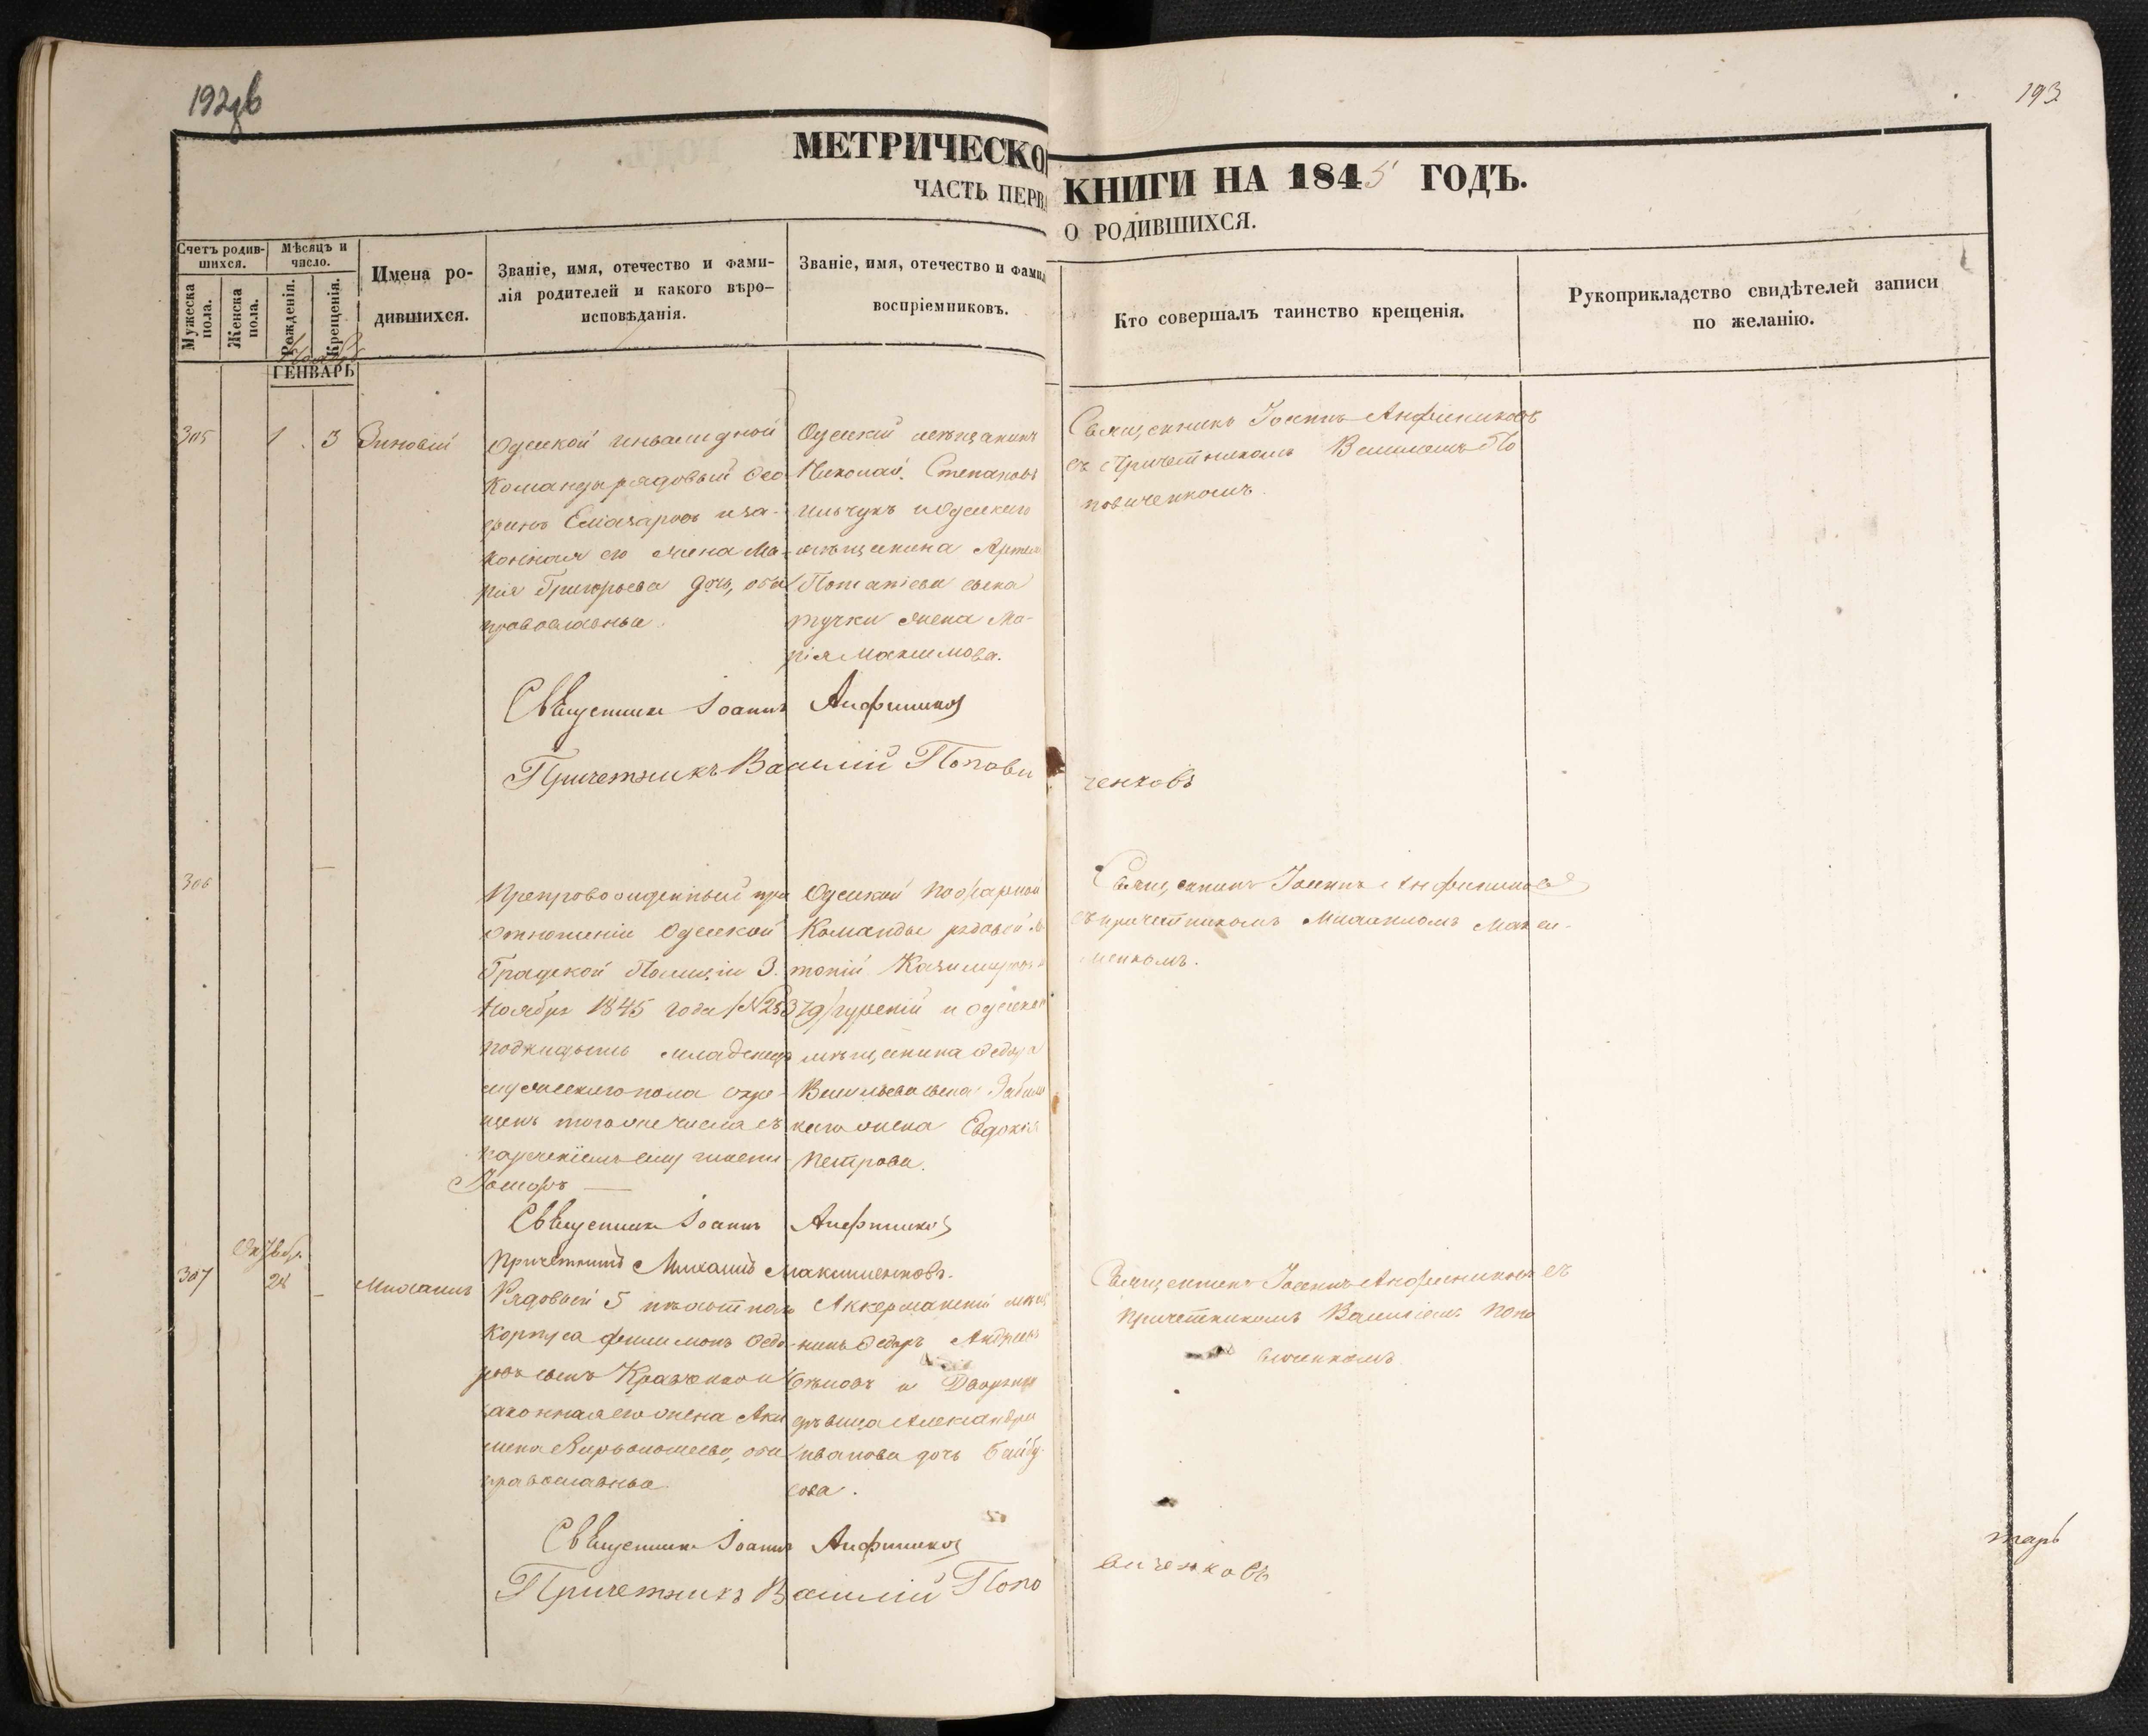 192об
193
МЕТРИЧЕСКО
КНИГИ НА 1845 ГОДЪ.
ЧАСТЬ ПЕРВА
О РОДИВШИХСЯ.
Счетъ родив-
шихся.
Мужеска
пола.
Женска
пола.
Мѣсяцъ и
число.
Рожденія.
Крещенія.
Имена ро-
дившихся.
Званіе, имя, отечество и фами-
лія родителей и какого вѣро-
исповѣданія.
Званіе, имя, отечество и фамил
воспріемниковъ.
Кто совершалъ таинство крещенія.
Рукоприкладство свидѣтелей записи
по желанію.
ГЕНВАРЬ
305
1
3
Зиновій
Одеской инвалидной
Команды рядовый
Елиазаровъ иза-
конная его жена Ма-
рія Григорьева дочь, оба
православные.
Одескій мѣщанинъ
Николай Степановъ
и Одескаго
мѣщанина
Потапіева сына
жена Ма-
рія Максимова.
Священникъ Іоаннъ Анфиниковъ
съ Причетникомъ Василіемъ По
повиченкомъ.
Священникъ Іоаннъ Анфиников
Причетникъ Василій Попови
ченковъ
306
Препровожденный при
отношеніи Одеской
Градской Полиціи 3.
Ноября 1845 года №25379
подкидышь младенецъ
мужескаго пола окре-
щенъ того же числа съ
нареченіемъ ему имени
Одеской пожарной
Команды рядовой
тоній
и Одескаго
мѣщанина Федора
Васильева сына
жена Евдокія
Петрова.
Священникъ Іоаннъ Анфиниковъ
съ причетникомъ Михаиломъ Макси-
менкомъ.
Священникъ Іоаннъ Анфиников
Причетникъ Михаилъ Максименковъ.
Октябр.
307
Михаилъ
Рядовый 5 пѣхотнаго
Корпуса Филимонъ Федо-
ровъ сынъ и
законная его жена Аки
лина оба
православные.
Аккерманскій мѣща
нинъ Федоръ Андреевъ
и Дворян
Александра
Иванова дочь
Священникъ Іоаннъ Анфиниковъ съ
причетникомъ Василіемъ Попо
виченкомъ
Священникъ Іоаннъ Анфиников
Причетникъ Василій Попо
виченковъ
тарь